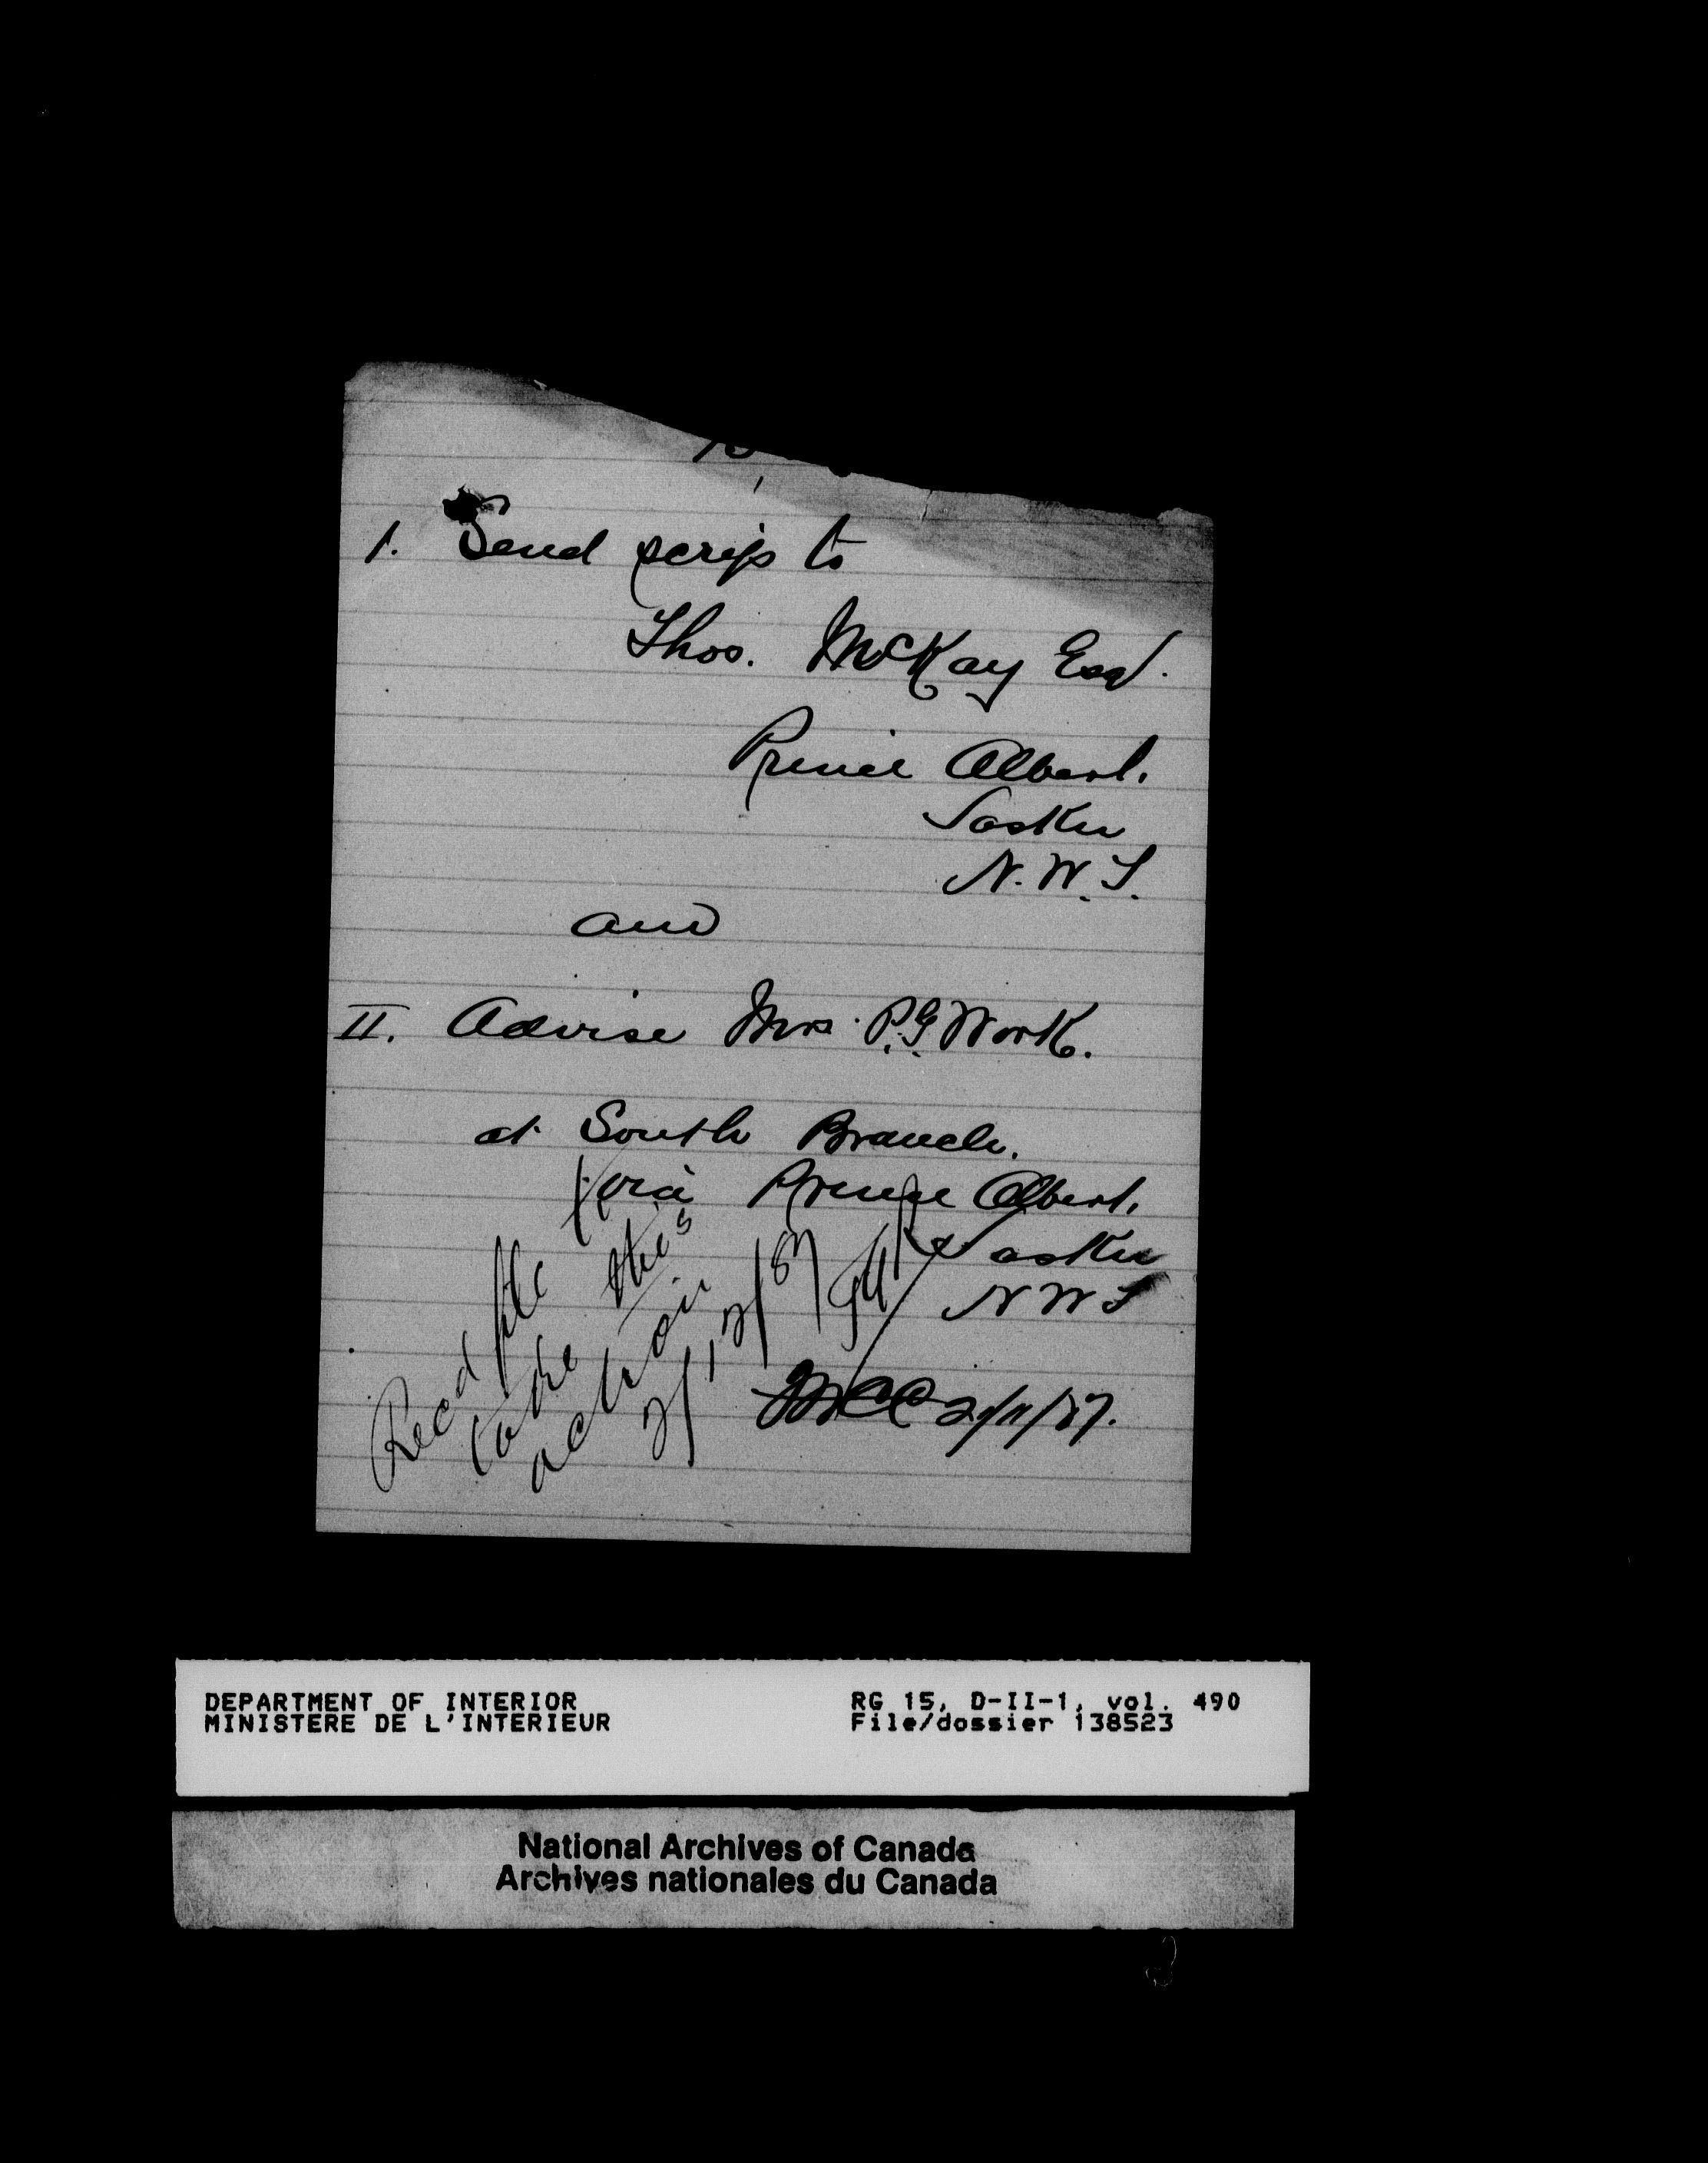 1. Send scrip to
Thos. McKay Esq.
Prince Albert.
Saskn
N.W.T.
and
II. Advise Mrs. P.G. Work.
at South Branch.
via Prince Albert,
Saskn
NWT
2/11/87.
Recd file
to take this
action
2/12/87
DEPARTMENT OF INTERIOR
MINISTERE DE L'INTERIEUR
RG 15, D-II-1, vol. 490
File/dossier 138523
National Archives of Canada
Archives nationales du Canada